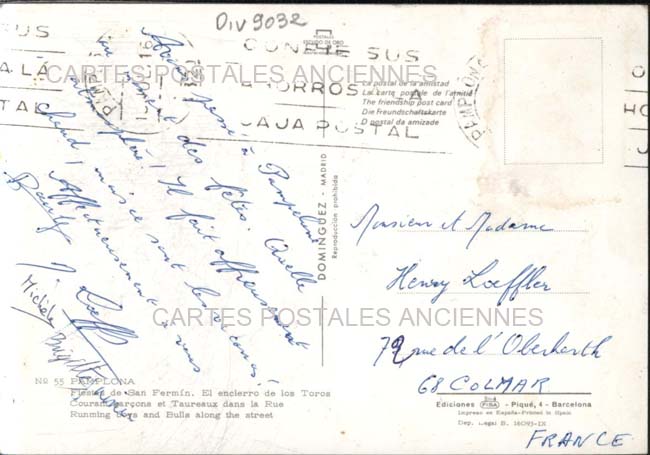 DIV9032
POSTALES
ESCUDO DE ORO
CONFIE SUS
AHORROS A LA
CAJA POSTAL
PAMPLONA
CARTES POSTALES ANCIENNES
La postal de la amistad
La carte postale de l'amitié
The friendship post card
Die Freundschaftskarte
O postal da amizade
passé à Pampelune
au moment des fêtes. Quelle
Il fait affreusement
chaud, mais ce sont les vacances!
Affectueusement à vous
J. Loeff
Michèle
Brigitte
DOMINGUEZ - MADRID
Reproducción prohibida
Monsieur et Madame
Henry Loeffler
72 rue de l'Oberharth
68 COLMAR
FRANCE
CARTES POSTALES ANCIENNES
Nº 55 PAMPLONA
Fiestas de San Fermín. El encierro de los Toros
Courant garçons et Taureaux dans la Rue
Running boys and Bulls along the street
Ediciones FISA - Piqué, 4 - Barcelona
Impreso en España-Printed in Spain
Dep. Legal B. 16093-IX